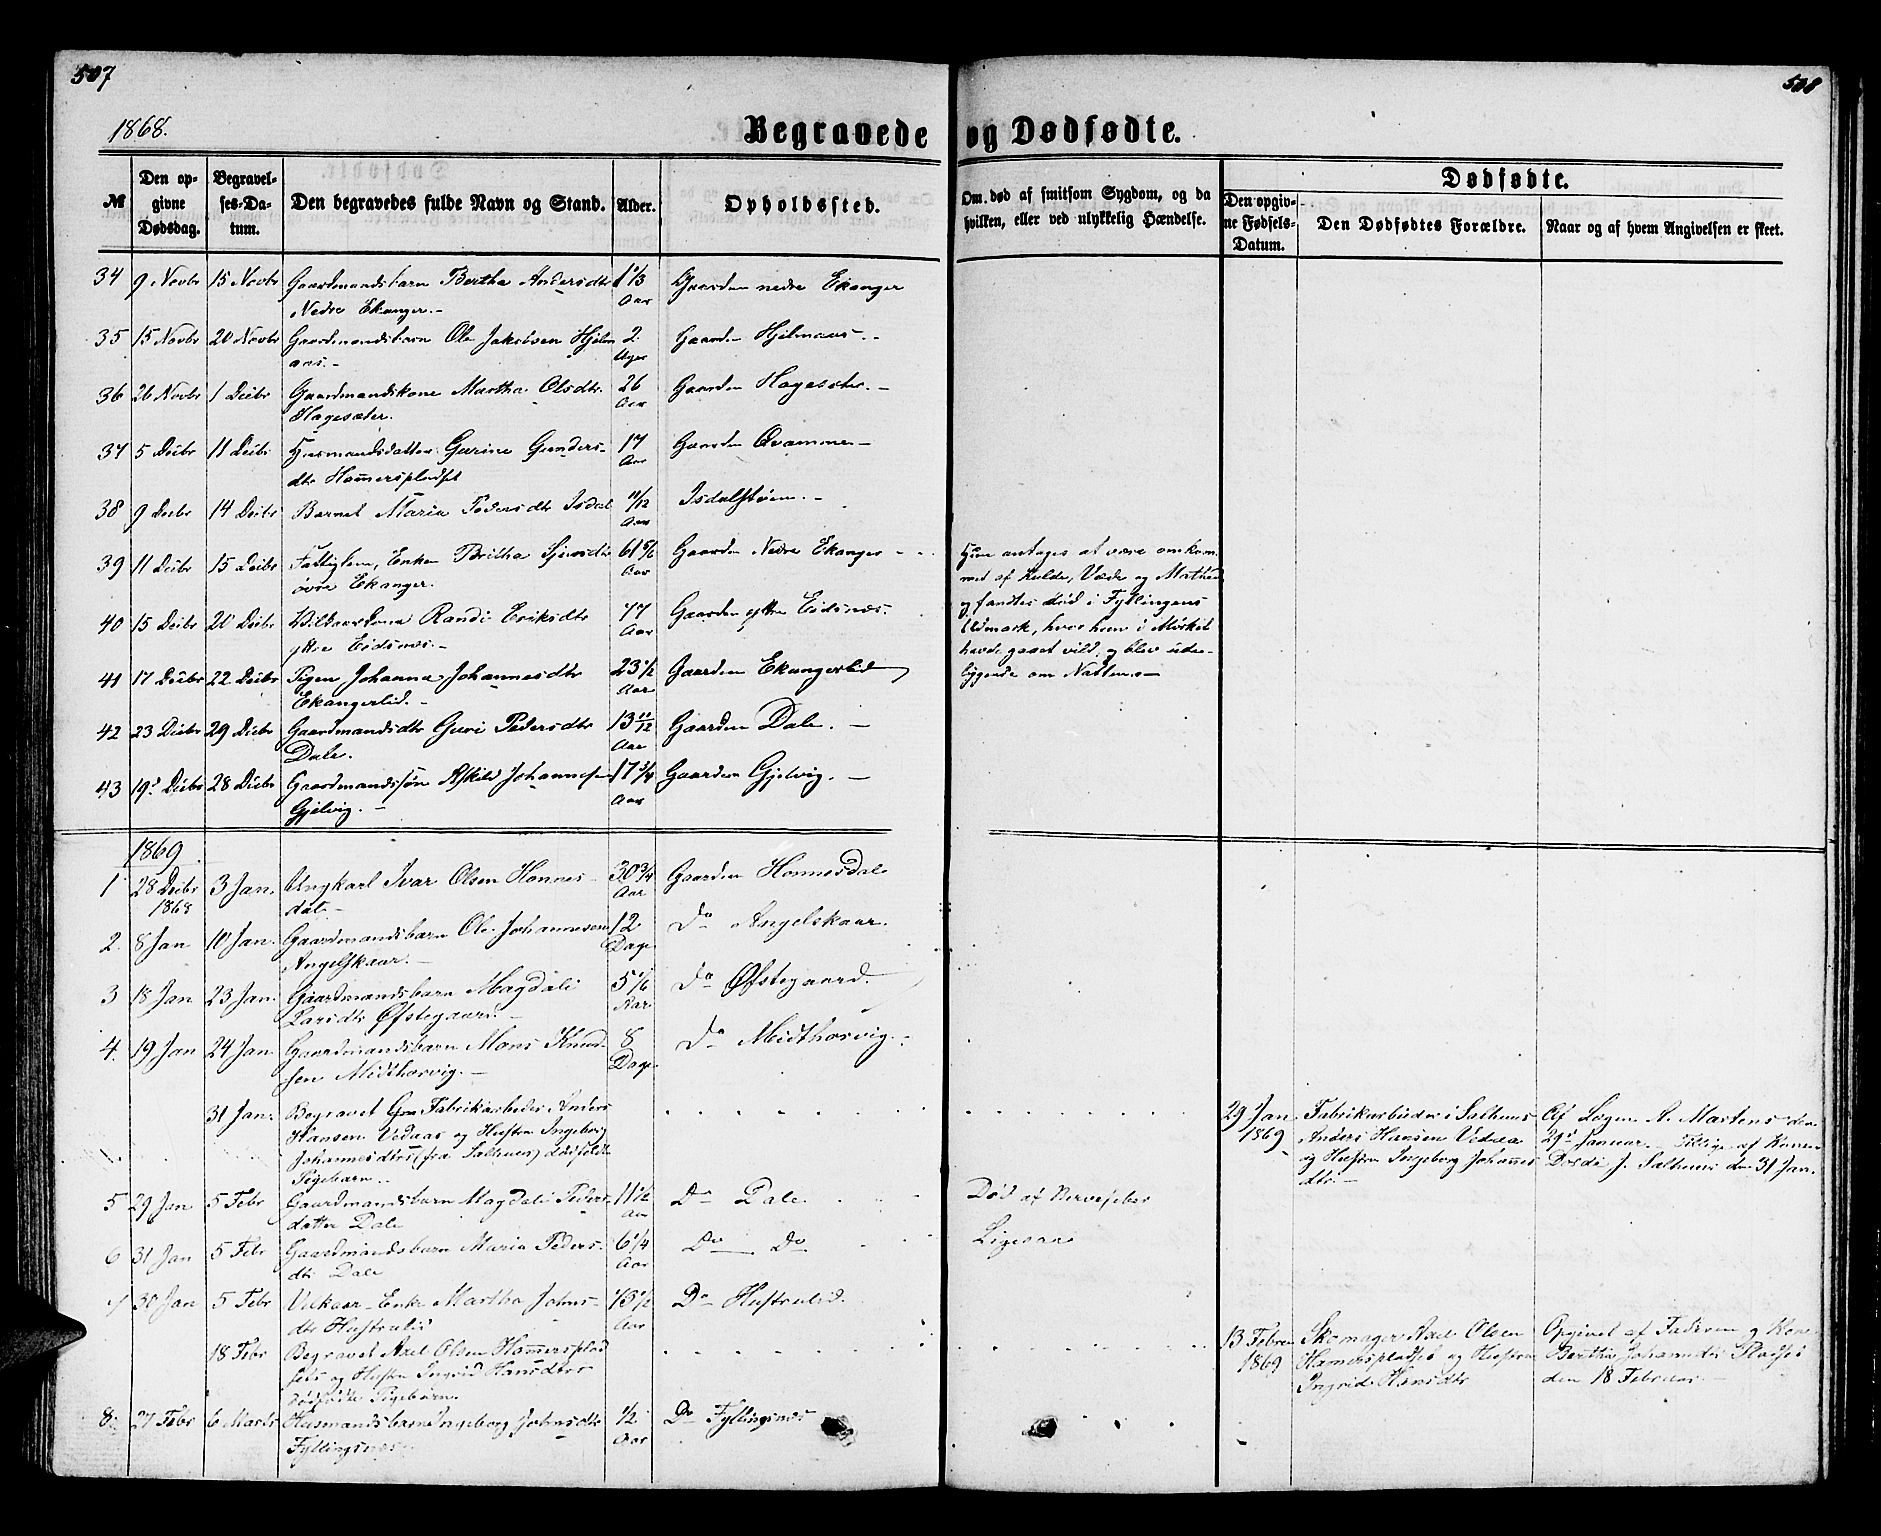 507
508
1868.
Begravede og Dødfødte.
№
Den opgivne Dødsdag.
Begravelses-Datum.
Den begravedes fulde Navn og Stand.
Alder.
Opholdssted.
Om død af smitsom Sygdom, og da hvilken, eller ved ulykkelig Hændelse.
Dødfødte.
Den opgivne Fødsels-Datum.
Den Dødfødtes Forældre.
Naar og af hvem Angivelsen er skeet.
34 9 Novbr 15 Novbr Gaardmandsbarn Bertha Andersdtr 1 1/3 Gaarden nedre Ekanger
Nedre Ekanger.- Aar
35 15 Novbr 20 Novbr Gaardmandsbarn Ole Jakobsen Hjelm 2 Gaarden Hjelmaas.-
aas.- Uger
36 26 Novbr 1 Decbr Gaardmandskone Martha Olsdtr 26 Gaarden Hagesæter.-
Hagesæter. Aar
37 5 Decbr 11 Decbr Husmandsdatter Gurine Gunders- 17 Gaarden Qvammen-
dtr Hammerspladset Aar
38 9 Decbr 14 Decbr Barnet Maria Pedersdtr Isdal 11/12 Isdalstøen.-
Aar
39 11 Decbr 15 Decbr Fattiglem, Enken Britha Sjursdtr 61 5/6 Gaarden Nedre Ekanger - Hun antages at være omkom-
øvre Ekanger. Aar met af Kulde, Væde og
og fandtes død i Fyllingens
40 15 Decbr 20 Decbr Vilkaarskone Randi Eriksdtr 77 Gaarden ytre Eidsnes.
ytre Eidsnes.- Aar Udmark, hvor hun i Mørket
havde gaaet vild, og blev ude-
41 17 Decbr 22 Decbr Pigen Johanna Johannesdtr 23 1/2 Gaarden Ekangerlid
Ekangerlid.- Aar liggende om Natten.-
42 23 Decbr 29 Decbr Gaardmandsdtr Guri Pedersdtr 13 11/12 Gaarden Dale.-
Dale. Aar
43 19 Decbr 28 Decbr Gaardmandssøn Askild Johannesen 17 3/4 Gaarden Gjelvig.-
Gjelvig.- Aar
1869
1 28 Decbr 3 Jan. Ungkarl Ivar Olsen Honnes- 30 3/4 Gaarden Honnesdale
1868 dal.- Aar
2. 8 Jan 10 Jan. Gaardmandsbarn Ole Johannesen 12 Do Angelskaar.
Angelskaar.- Dage
3 18 Jan 23 Jan. Gaardmandsbarn Magdali 5 1/6 Do Øfstegaard.
Larsdtr Øfstegaard.- Aar
4. 19 Jan 24 Jan. Gaardmandsbarn Mons Knud- 8 Do Midthorvig.-
sen Midthorvig.- Dage
31 Jan. Begravet Fabrikarbeder Anders 29 Jan. Fabrikarbeider i Salhuus Af Lægen A. Martens den
Hansen Vedaas og Hustru Ingeborg 1869 Anders Hansen Vedaa 29 Januar. af Konen
Johannesdtrs (fra Salhuus) dødfødte og Hustru Ingeborg Johannes Salhuus den 31 Jan.
Pigebarn.. dtr.-
5 29 Jan 5 Febr Gaardmandsbarn Magdali Peders 11 1/2 Do Dale. Død af Nervefeber
datter Dale Aar
6 31 Jan 5 Febr Gaardmandsbarn Maria Peders- 6 1/4 Do Do Ligesaa
dtr Dale Aar
7 30 Jan 5 Febr Vilkaar-Enke Martha Johns- 73 1/2 Do Hustrulid.
dtr Hustrulid Aar
18 Febr Begravet Axel Olsen Hammersplad 13 Februar Skomager Axel Olsen Opgivet af Faderen og Kon
sets og Hustru Ingrid Hansdtrs 1869 Hamerspladset og Hustru Bertha Johannesdtr Pladset
dødfødte Pigebarn. Ingrid Hansdtr den 18 Februar.-
8. 27 Febr 6 Marts Husmandsbarn Ingeborg Johnsdtr 1/2 Do Fyllingsnes
Fyllingsnes. Aar